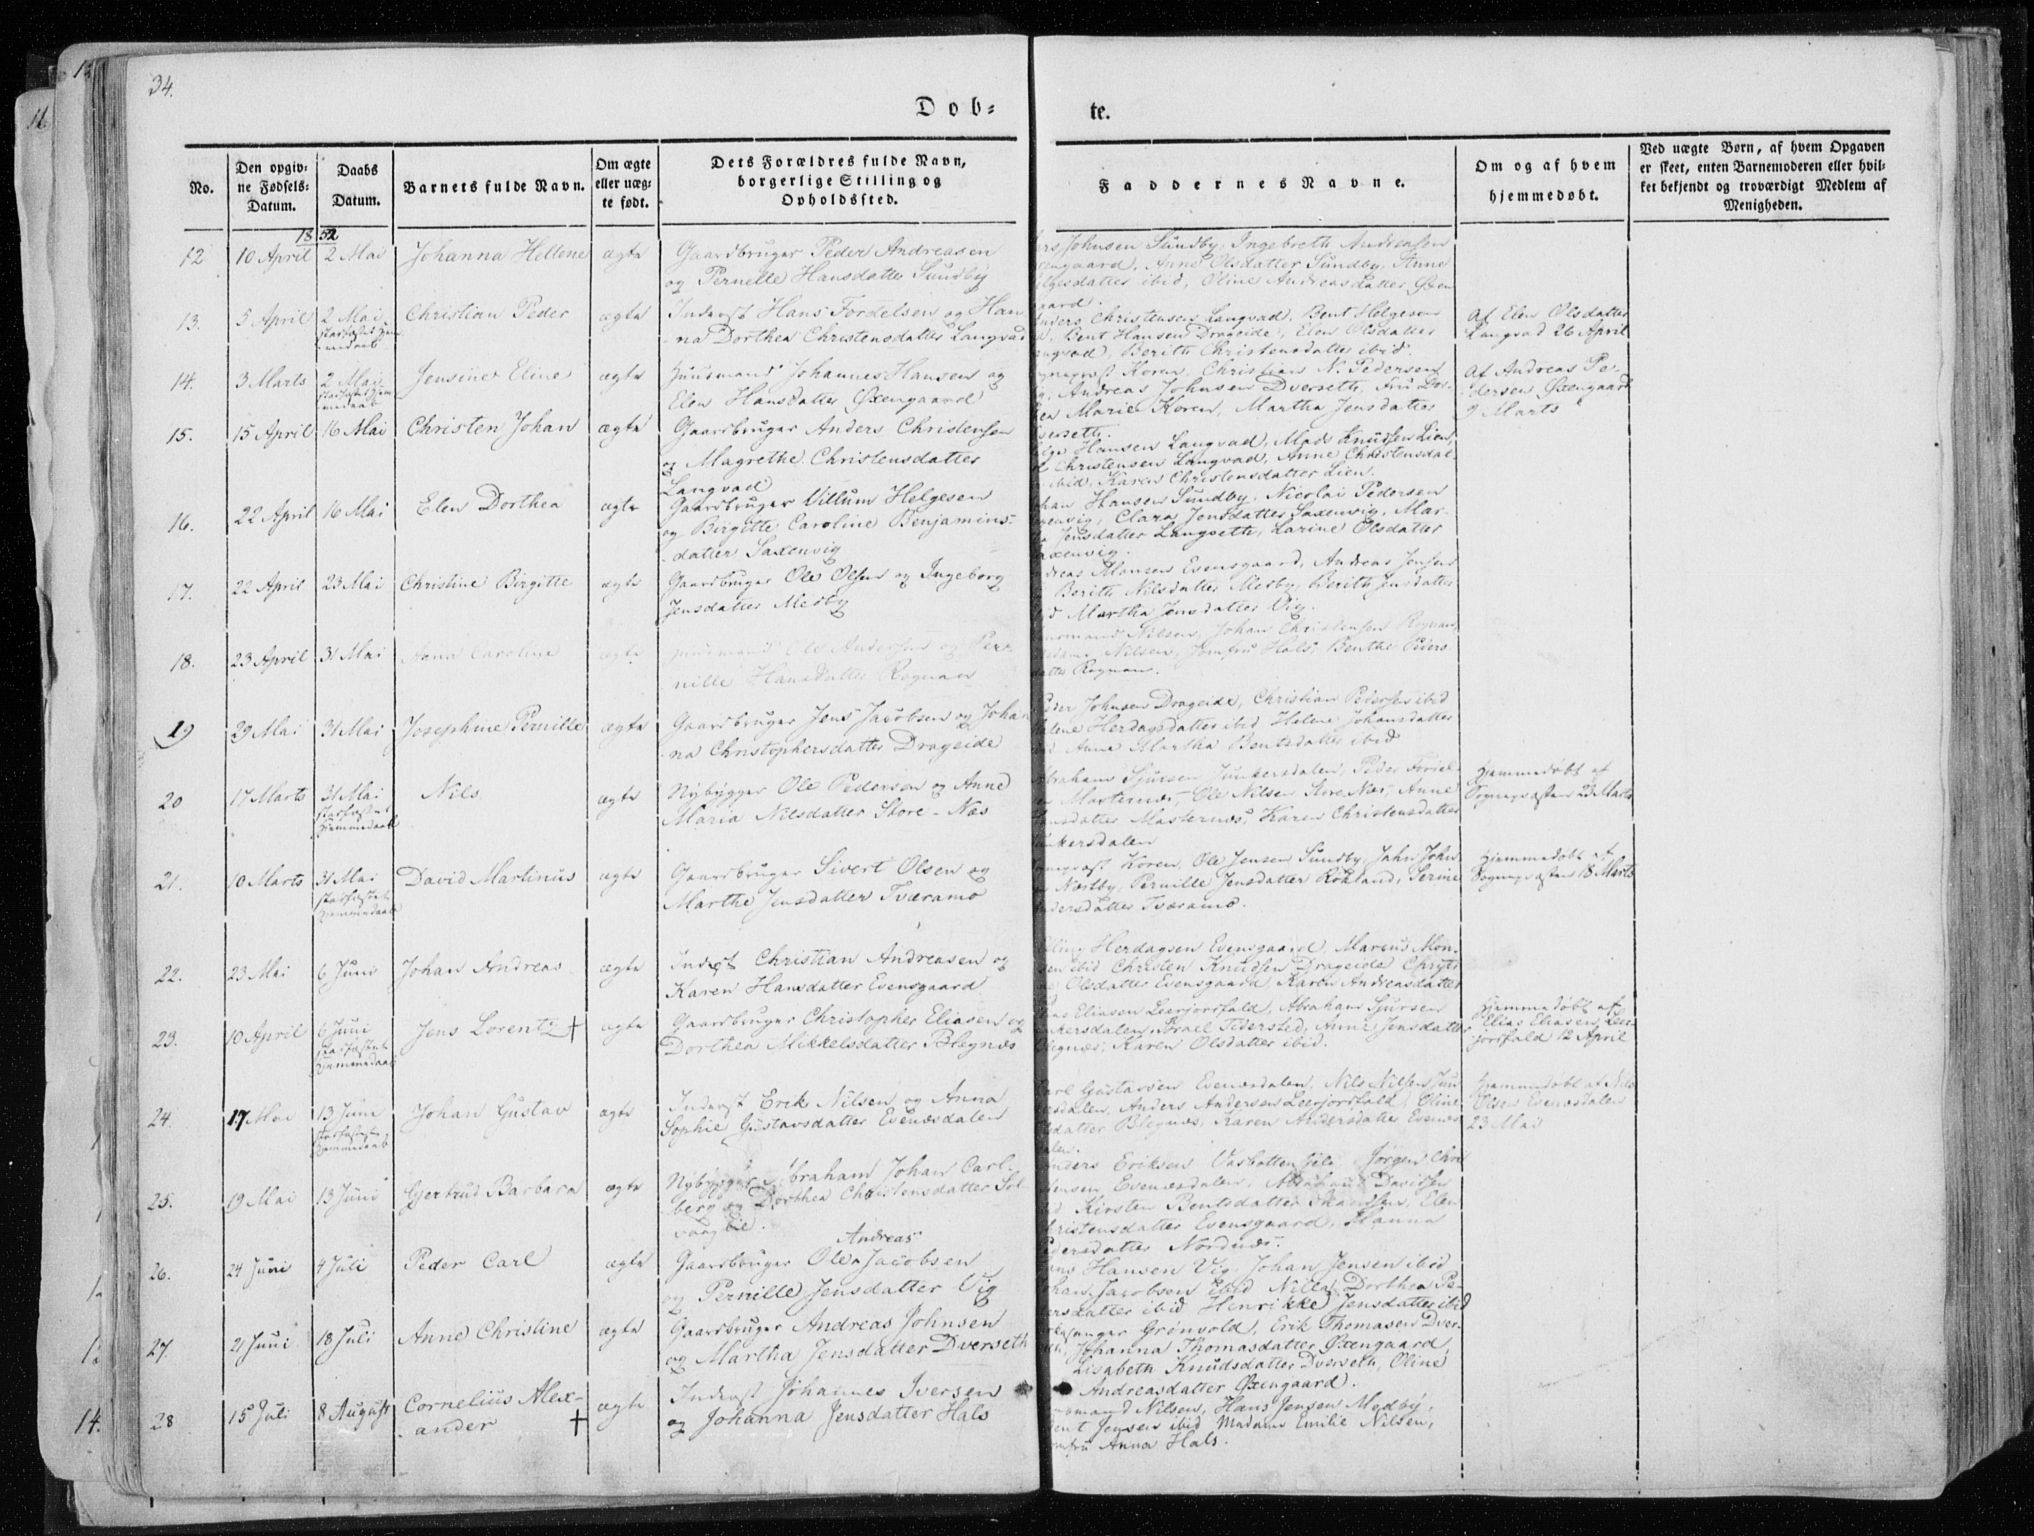 34.
Døb=
te.
No.
Den opgiv-
ne Fødsels-
Datum.
Daabs
Datum.
Barnets fulde Navn.
Om ægte
eller uæg-
te født.
Dets Forældres fulde Navn,
borgerlige Stilling og
Opholdssted.
Faddernes Navne.
Om og af hvem
hjemmedøbt.
Ved uægte Børn, af hvem Opgaven
er skeet, enten Barnemoderen eller hvil-
ket bekjendt og troværdigt Medlem af
Menigheden.
1852
12 10 April 2 Mai Johanna Hellene ægte Gaardbruger Peder Andreasen
og Pernelle Hansdatter Sundby
Johnsen Sundby, Ingebreth Andreasen
Anne Olsdatter Sundby, Anne
ibid, Oline Andreasdatter Øxen
gaard.
13. 5 April 2 Mai Christian Peder ægte Inderst Hans Fordelsen og Han
na Dorthea Christensdatter Langvad
Anders Christensen Langvad, Bent Helgesen
Bent Hansen Drageide, Elen Olsdatter
Langvad, Berith Christensdatter ibid.
Af Elen Olsdatter
Langvad 26 April
14. 3 Marts 2 Mai Jensine Eline ægte Huusmand Johannes Hansen og
Elen Hansdatter Øxengaard
Koren, Christian N. Pedersen
Andreas Johnsen Dverseth, Fru
Marie Koren, Martha Jensdatter
Dverseth.
Af Andreas Pe-
dersen Øxengaard
9 Marts
15. 15 April 16 Mai Christen Johan ægte Gaardbruger Anders Christensen
og Magrethe Christensdatter
Langvad
Hansen Langvad, Mads Knudsen Lien,
Christensen Langvad, Anne Christensdat-
ibid, Karen Christensdatter Lien.
16. 22 April 16 Mai Elen Dorthea ægte Gaardbruger Villum Helgesen
og Birgitte Caroline Benjamins-
datter Saxenvig
Johan Hansen Sundby, Nicolai Pedersen
Saxenvig, Clara Jensdatter Saxenvig, Mar-
Jensdatter Langseth, Karine Olsdatter
Saxenvig.
17. 22 April 23 Mai Christine Birgitte ægte Gaardbruger Ole Olsen og Ingeborg
Jensdatter Medby
Andreas Monsen Evensgaard, Andreas Jensen
Berith Nilsdatter Medby, Berith Jensdatter
Martha Jensdatter Vig.
18. 23 April 31 Mai Anna Caroline ægte Huusmand Ole Andersen og Per-
nille Hansdatter Rognan
Nilsen, Johan Christensen Rognan,
Madame Nilsen, Jomfru Hals, Benthe Peders
datter Rognan.
19 29 Mai 31 Mai Josephine Pernille ægte Gaardbruger Jens Jacobsen og Johan
na Christophersdatter Drageide
Peder Johnsen Drageide, Christian Pedersen ibid
Herdagsdatter ibid Helene Johansdatter
ibid Anne Martha Bentsdatter ibid
20 17 Marts 31 Mai
stadfæstet
Hjemmedaab
Nils ægte Nybygger Ole Pedersen og Anne
Maria Nilsdatter Store-Næs
Abraham Sjursen Junkersdalen, Peder
Masternæs, Ole Nilsen Store Næs, Anne
Hansdatter Masternæs, Karen Christensdatter
Junkersdalen
Hjemmedøbt af
Sognepræsten 23 Marts
21. 10 Marts 31 Mai
stadfæstet
Hjemmedaab
David Martinus ægte Gaardbruger Sivert Olsen og
Marthe Jensdatter Tværamo
Koren, Ole Jensen Sundby, Jahn John-
Næstby, Pernille Jensdatter Rokland, Serine
Andersdatter Tværamo.
Hjemmedøbt af
Sognepræsten 18 Marts
22. 23 Mai 6 Juni Johan Andreas ægte Inderst Christian Andreasen og
Karen Hansdatter Evensgaard
Elling Herdagsen Evensgaard, Marcus Mon-
sen ibid Christen Knudsen Drageide
Olsdatter Evensgaard, Karen Andreasdatter
23. 10 April 6 Juni
stadfæstet
Hjemmedaab
Jens Lorentz † ægte Gaardbruger Christopher Eliasen og
Dorthea Mikkelsdatter Blegnæs
Eliasen Leerjorsfald, Abraham Sjursen
Junkersdalen, Israel Anne Jensdatter
Blegnæs, Karen Olsdatter ibid.
Hjemmedøbt af
Elias Eliasen Leer-
jorsfald 12 April
24. 17 Mai 13 Juni
stadfæstet
Hjemmedaab
Johan Gustav ægte Inderst Erik Nilsen og Anna
Sophie Gustavsdatter Evenesdalen
Carl Gustavsen Evenesdalen, Nils Nilsen Jun
kersdalen, Anders Andersen Leerjorsfald, Oline
datter Blegnæs, Karen Andersdatter Evenes
dalen.
Hjemmedøbt af Nils
Olsen Evenesdalen
23 Mai
25. 19 Mai 13 Juni Gjertrud Barbara ægte Nybygger Abraham Johan Carl-
berg og Dorthea Christensdatter Sol-
vaaglie.
Anders Eriksen Jørgen Chri
stensen Evenesdalen, Abraham Davidsen
Kirsten Bentsdatter Elen
Christensdatter Evensgaard, Hanna
Pedersdatter Nordnæs.
26. 24 Juni 4 Juli Peder Carl ægte Gaardbruger Ole Andreas Jacobsen
og Pernille Jensdatter Vig
Hansen Vig, Johan Jensen ibid
Johan Jacobsen ibid Nilla Dorthea Pe-
dersdatter ibid Henrikke Jensdatter ibid
27. 21 Juni 18 Juli Anne Christine ægte Gaardbruger Andreas Johnsen
og Martha Jensdatter Dverseth
Kirkesanger Grønvold, Erik Thomasen Dver-
seth, Johanna Thomasdatter Øxengaard,
Lisabeth Knudsdatter Dverseth, Oline
Andreasdatter Øxengaard.
28 15 Juli 8 August Cornelius Alex-
ander † ægte Inderst Johannes Iversen
og Johanna Jensdatter Hals
Nilsen, Hans Jensen Medby,
Bent Jensen ibid Madame Emilie Nilsen,
Jomfru Anna Hals.
14.